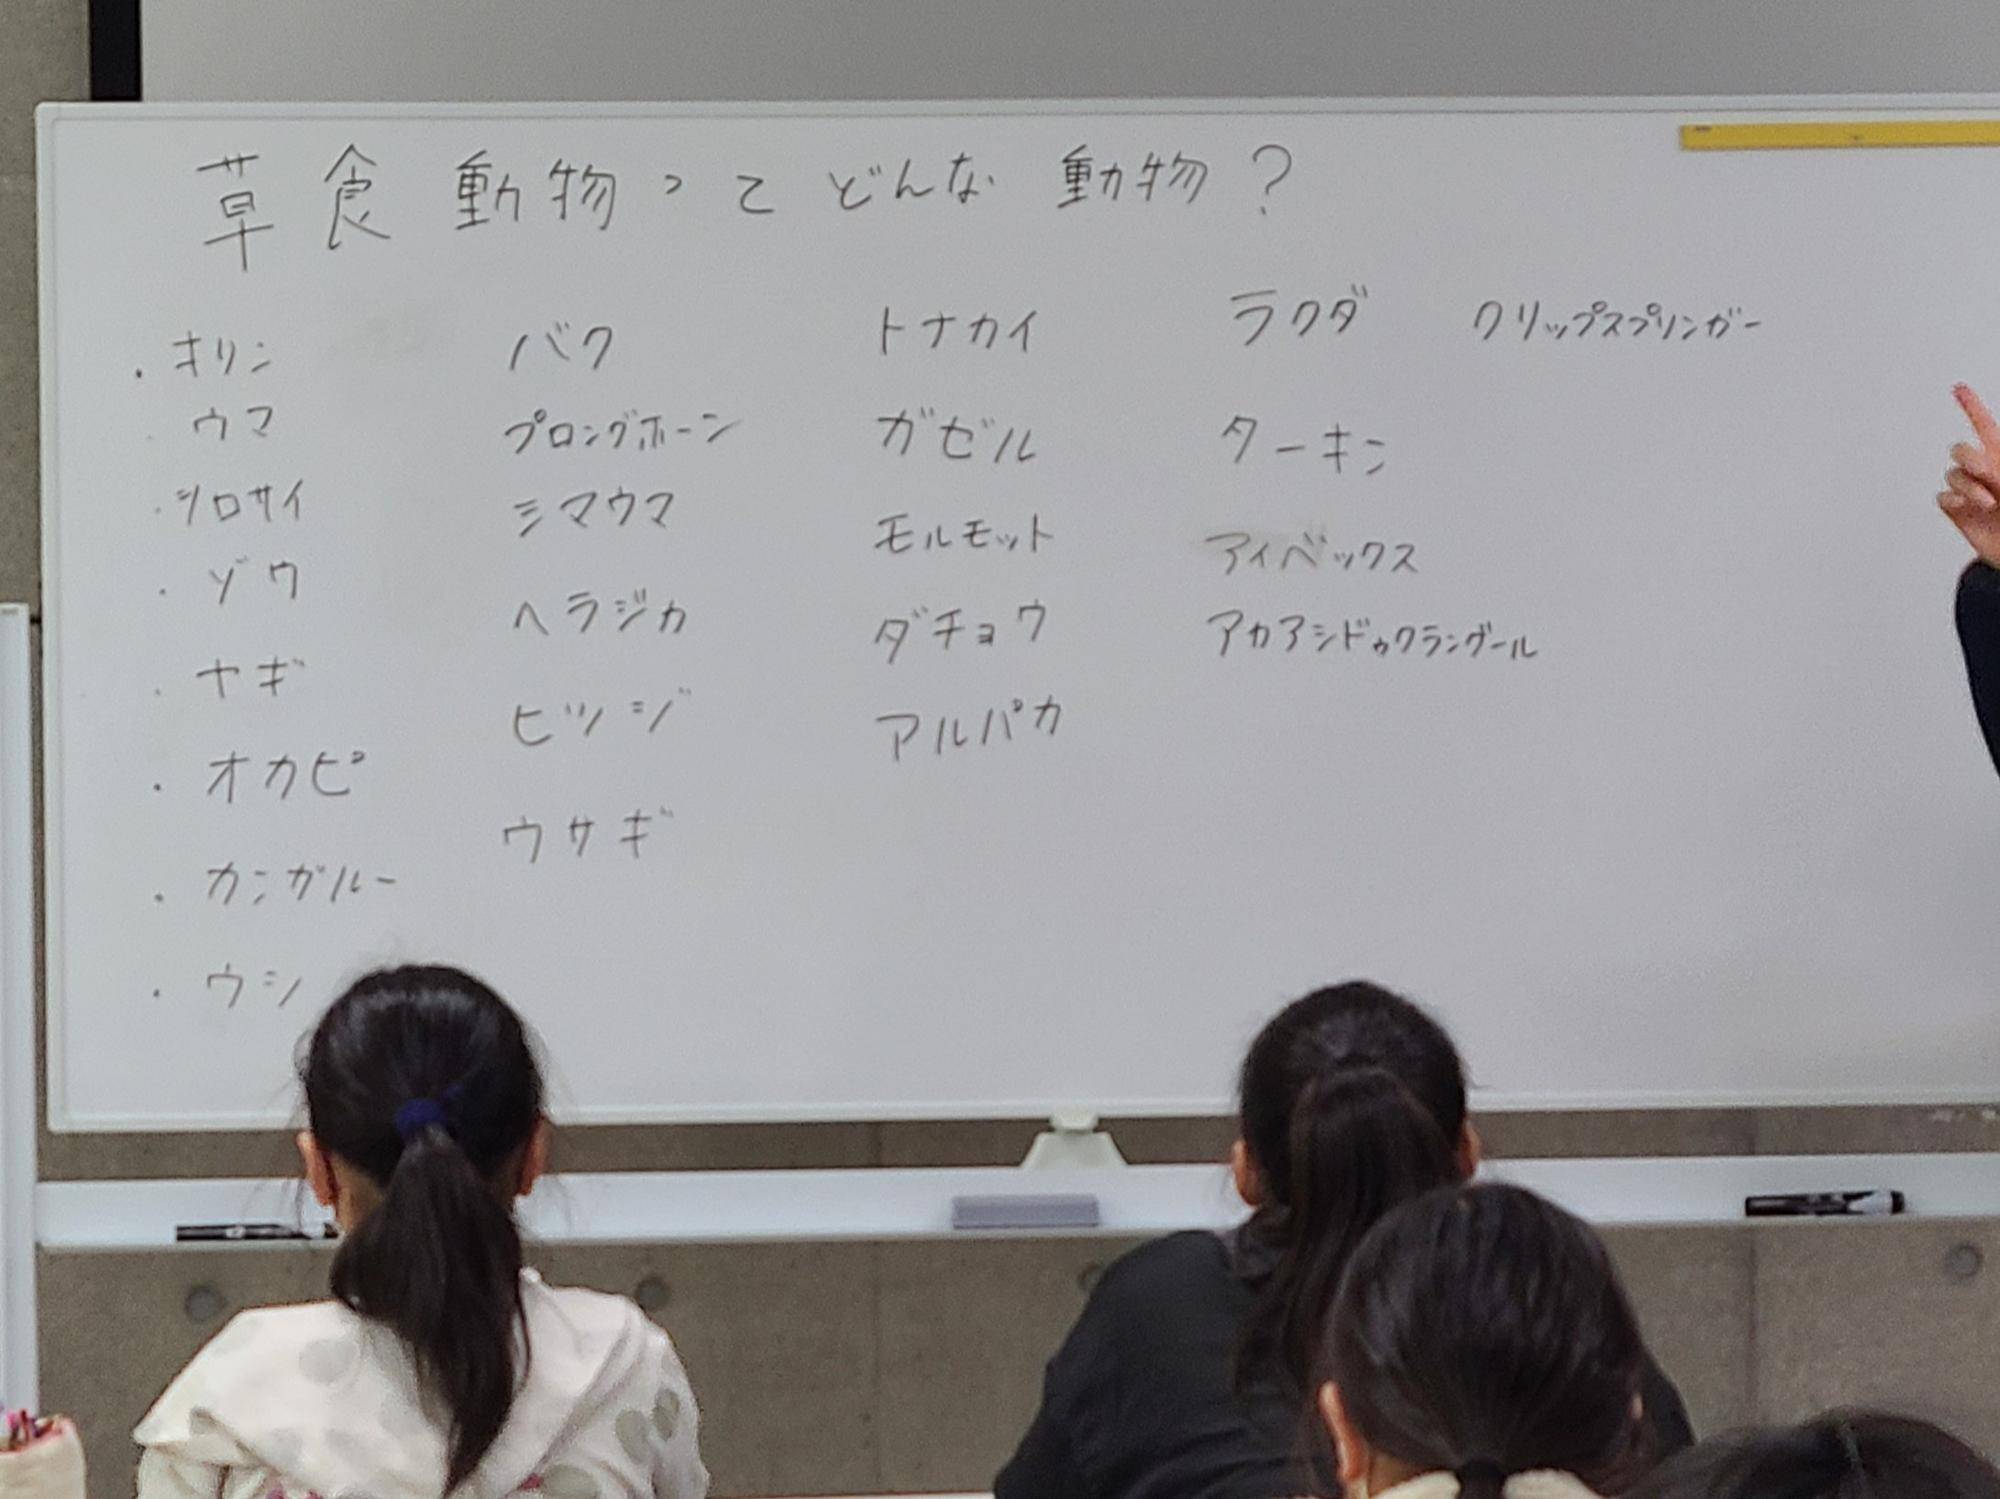 草食動物って どんな 動物？
・キリン
・ウマ
・シロサイ
・ゾウ
・ヤギ
・オカピ
・カンガルー
・ウシ
バク
プロングホーン
シマウマ
ヘラジカ
ヒツジ
ウサギ
トナカイ
ガゼル
モルモット
ダチョウ
アルパカ
ラクダ
ターキン
アイベックス
アカアシドゥクラングール
クリップスプリンガー